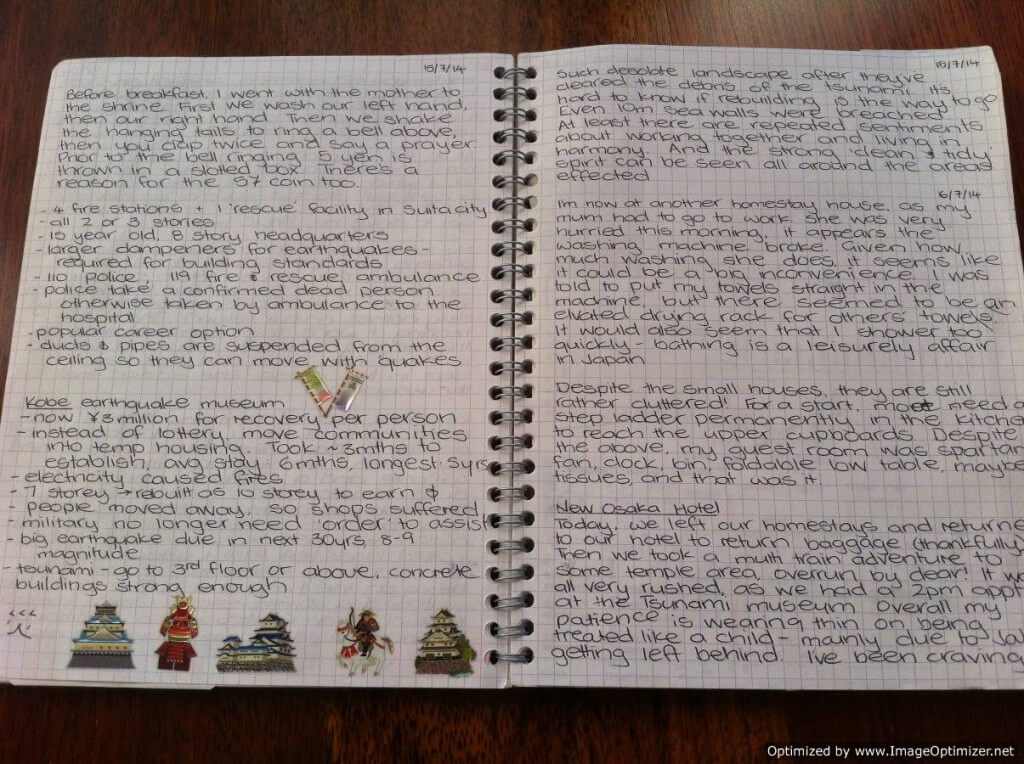 15/7/14
Before breakfast, I went with the mother to
the shrine. First we wash our left hand,
then our right hand. Then we shake
the hanging tails to ring a bell above,
then you clap twice and say a prayer.
Prior to the bell ringing 5 yen is
thrown in a slotted box. There's a
reason for the 5¥ coin too.
- 4 fire stations + 1 'rescue' facility in Suita city
- all 2 or 3 stories
- 15 year old, 8 story headquarters
- larger dampeners for earthquakes -
required for building standards
- 110 police, 119 fire & rescue, ambulance
- police take a confirmed dead person
otherwise taken by ambulance to the
hospital
- popular career option
- ducts & pipes are suspended from the
ceiling so they can move with quakes
Kobe earthquake museum
- now ¥3 million for recovery per person
- instead of lottery, move communities
into temp housing. Took ~3mths to
establish, avg stay 6mths, longest 5yrs
- electricity caused fires
- 7 storey → rebuilt as 10 storey to earn $
- people moved away, so shops suffered
- military no longer need 'order' to assist
- big earthquake due in next 30yrs, 8-9
magnitude
- tsunami - go to 3rd floor or above, concrete
buildings strong enough
15/7/14
such desolate landscape after they've
cleared the debris of the tsunami. It's
hard to know if rebuilding is the way to go.
Even 10m sea walls were breached.
At least there are repeated sentiments
about working together and living in
harmony. And the strong 'clean & tidy'
spirit can be seen all around the areas
effected.
16/7/14
I'm now at another homestay house, as my
mum had to go to work. She was very
hurried this morning, it appears the
washing machine broke. Given how
much washing she does, it seems like
it could be a big inconvenience. I was
told to put my towels straight in the
machine, but there seemed to be an
elvated drying rack for others' towels.
It would also seem that I shower too
quickly - bathing is a leisurely affair
in Japan.
Despite the small houses, they are still
rather cluttered! For a start, most need a
step ladder permanently in the kitchen
to reach the upper cupboards. Despite
the above, my guest room was spartan:
fan, clock, bin, foldable low table, maybe
tissues, and that was it.
New Osaka Hotel
Today, we left our homestays and returne
to our hotel to return baggage (thankfully)
Then we took a multi train adventure to
some temple area, overrun by dear! It wa
all very rushed, as we had a 2pm appt
at the Tsunami museum. Overall my
patience is wearing thin on being
treated like a child - mainly due to
getting left behind. I've been craving
Optimized by www.ImageOptimizer.net